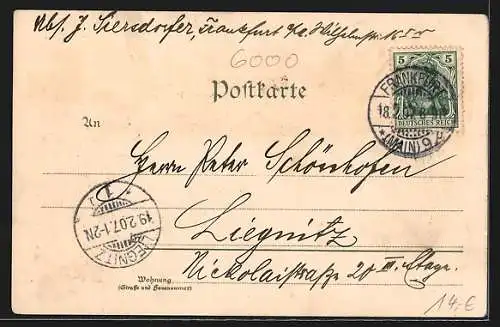 Abs. J. Siersdorfer, Frankfurt a/M. Wilhelmstr. 16
6000
5 5
DEUTSCHES REICH
FRANKFURT
18.2.07. 8-
* (MAIN) 9 *
Postkarte
An
Herrn Peter Schönhofen
Liegnitz
Nickolaistraße 20 III. Etage.
LIEGNITZ
19.2.07.1-2N
1
Wohnung
(Straße und Hausnummer)
14.-€